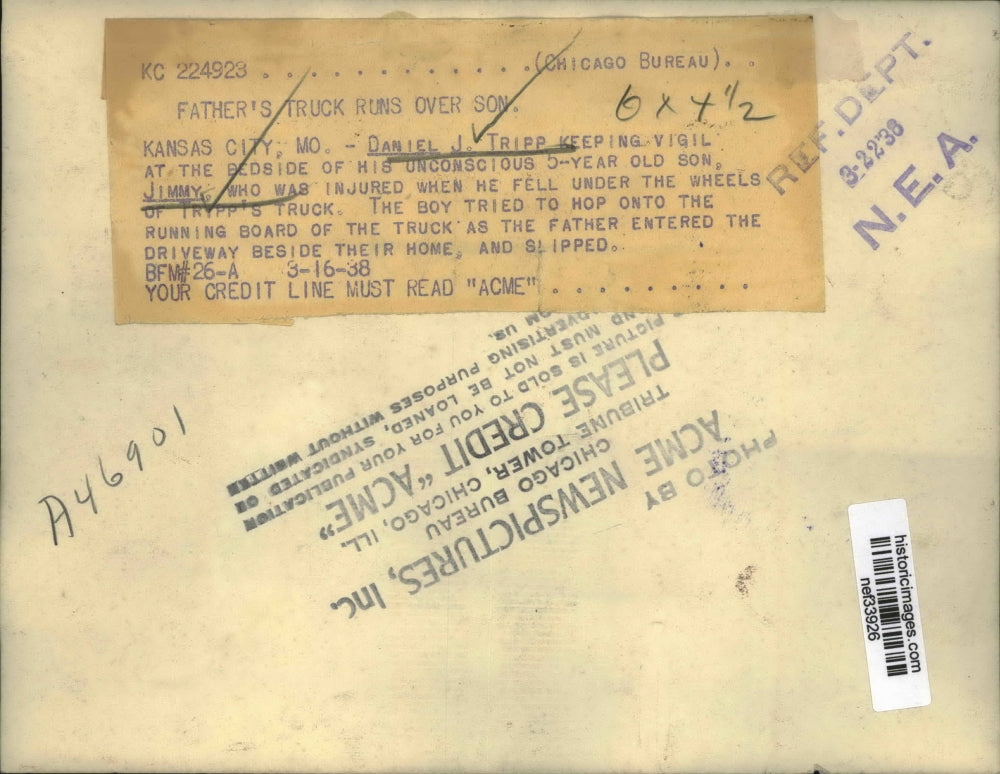 KC 224923 . . . . . . . . . . . . . (CHICAGO BUREAU). .
FATHER'S TRUCK RUNS OVER SON.
6 x 4 1/2
KANSAS CITY, MO. - DANIEL J. TRIPP KEEPING VIGIL
AT THE BEDSIDE OF HIS UNCONSCIOUS 5-YEAR OLD SON,
JIMMY, WHO WAS INJURED WHEN HE FELL UNDER THE WHEELS
OF TRIPP'S TRUCK. THE BOY TRIED TO HOP ONTO THE
RUNNING BOARD OF THE TRUCK AS THE FATHER ENTERED THE
DRIVEWAY BESIDE THEIR HOME, AND SLIPPED.
BFM#26-A 3-16-38
YOUR CREDIT LINE MUST READ "ACME" . . . . . . . . .
REF. DEPT.
3-22'38
N. E. A.
A46901
PHOTO BY
ACME NEWSPICTURES, Inc.
CHICAGO BUREAU
TRIBUNE TOWER, CHICAGO, ILL.
PLEASE CREDIT "ACME"
PICTURE IS SOLD TO YOU FOR YOUR PUBLICATION
AND MUST NOT BE LOANED, SYNDICATED OR
ADVERTISING PURPOSES WITHOUT WRITTEN
OM US.
historicimages.com
nef33926